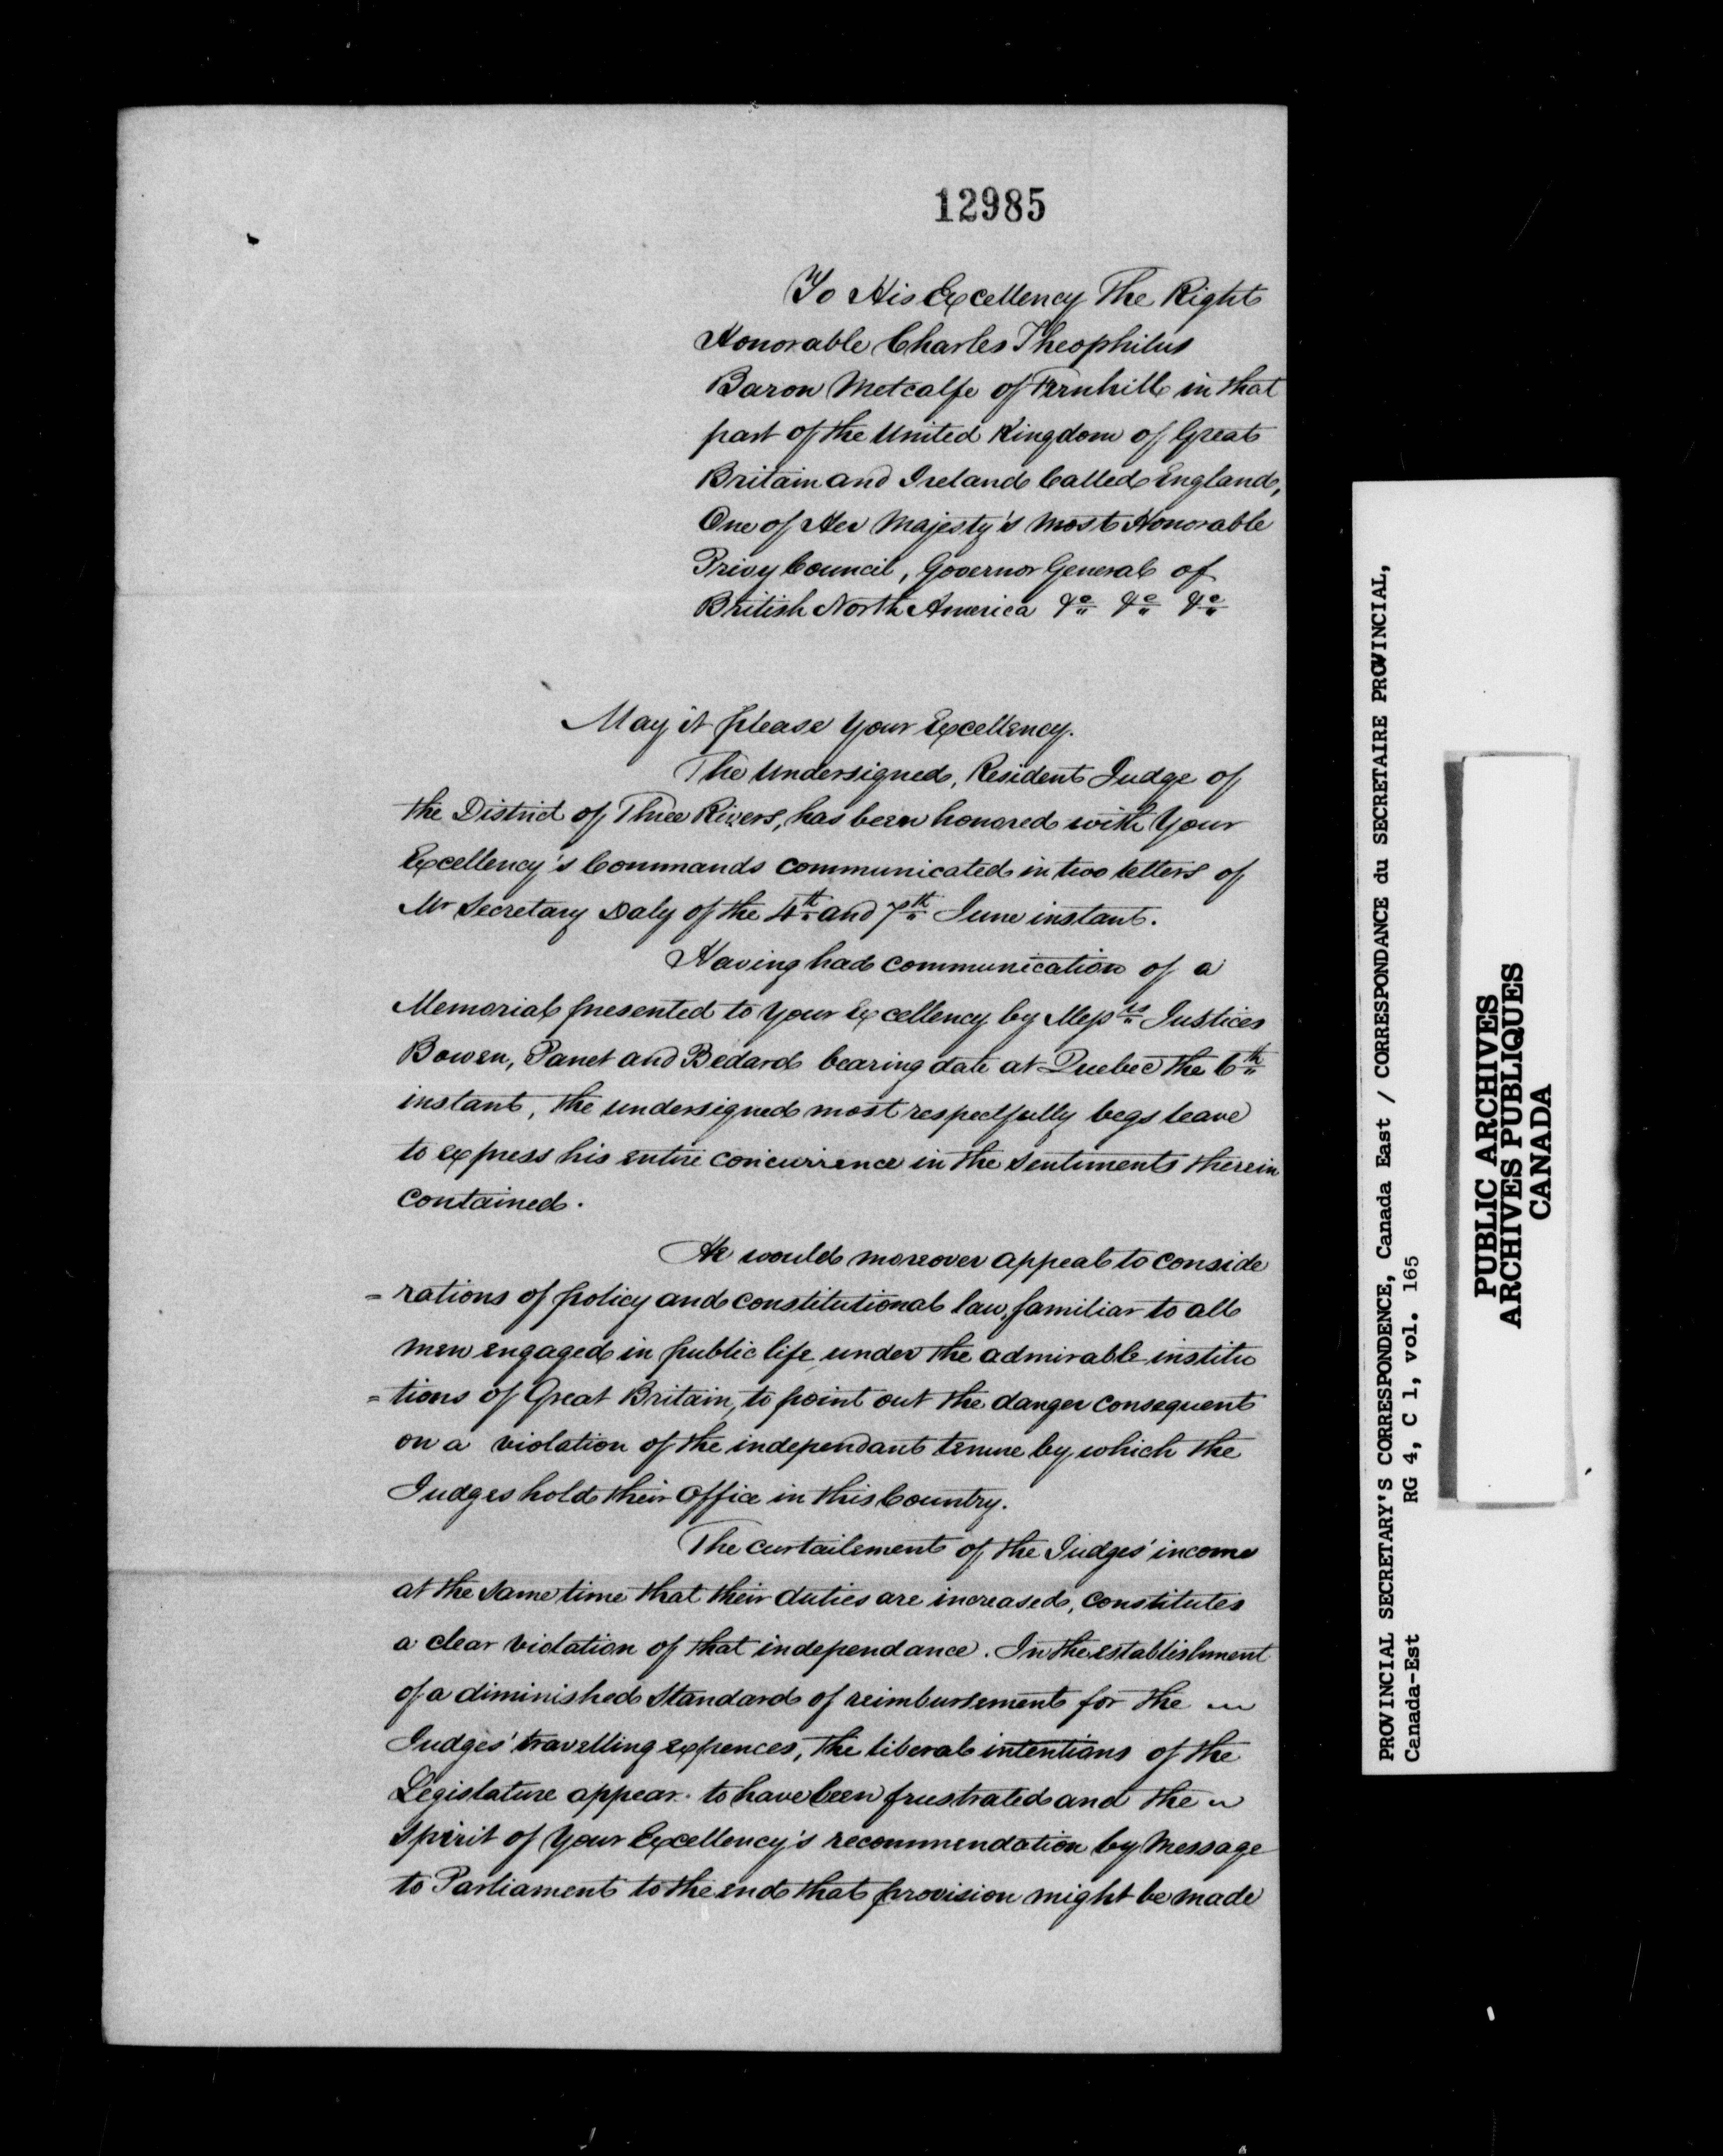 12985
To His Excellency The Right
Honorable Charles Theophilus
Baron Metcalfe of Fernhill in that
part of the United Kingdom of Great
Britain and Ireland Called England,
One of Her Majesty's most Honorable
Privy Council, Governor General of
British North America &c &c &c
May it please Your Excellency.
The Undersigned, Resident Judge of
the District of Three Rivers, has been honored with Your
Excellency's Commands communicated in two letters of
Mr Secretary Daly of the 4th and 7th June instant.
Having had communication of a
Memorial presented to Your Excellency by Messrs Justices
Bowen, Panet and Bedard bearing date at Quebec the 6th
instant, the undersigned most respectfully begs leave
to express his entire concurrence in the sentiments therein
contained.
He would moreover appeal to conside
= rations of policy and constitutional law, familiar to all
men engaged in public life under the admirable institu
= tions of Great Britain, to point out the danger consequent
on a violation of the independant tenure by which the
Judges hold their Office in this Country.
The curtailment of the Judges' income
at the same time that their duties are increased, constitutes
a clear violation of that independance. In the establishment
of a diminished Standard of reimbursement for the
Judges' travelling expences, the liberal intentions of the
Legislature appear to have been frustrated and the
spirit of Your Excellency's recommendation by Message
to Parliament to the end that provision might be made
PROVINCIAL SECRETARY'S CORRESPONDENCE, Canada East / CORRESPONDANCE du SECRETAIRE PROVINCIAL,
Canada-Est RG 4, C 1, vol. 165
PUBLIC ARCHIVES
ARCHIVES PUBLIQUES
CANADA